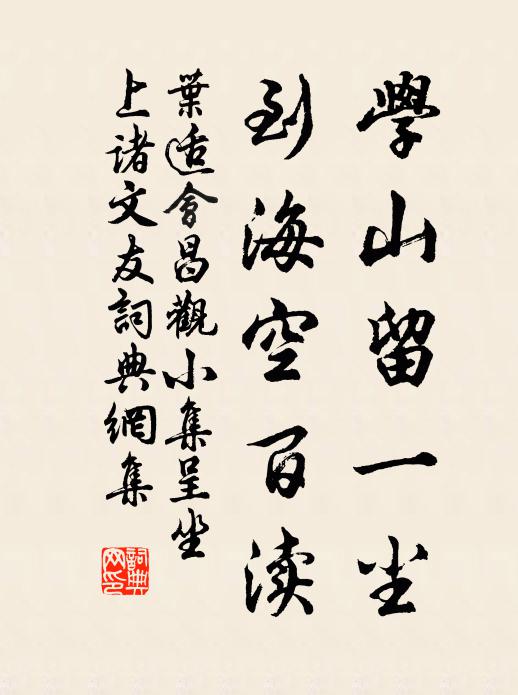 學山留一尘
到海空百渎
葉适會昌觀小集呈坐
上諸文友詞典網集
詞典
网印